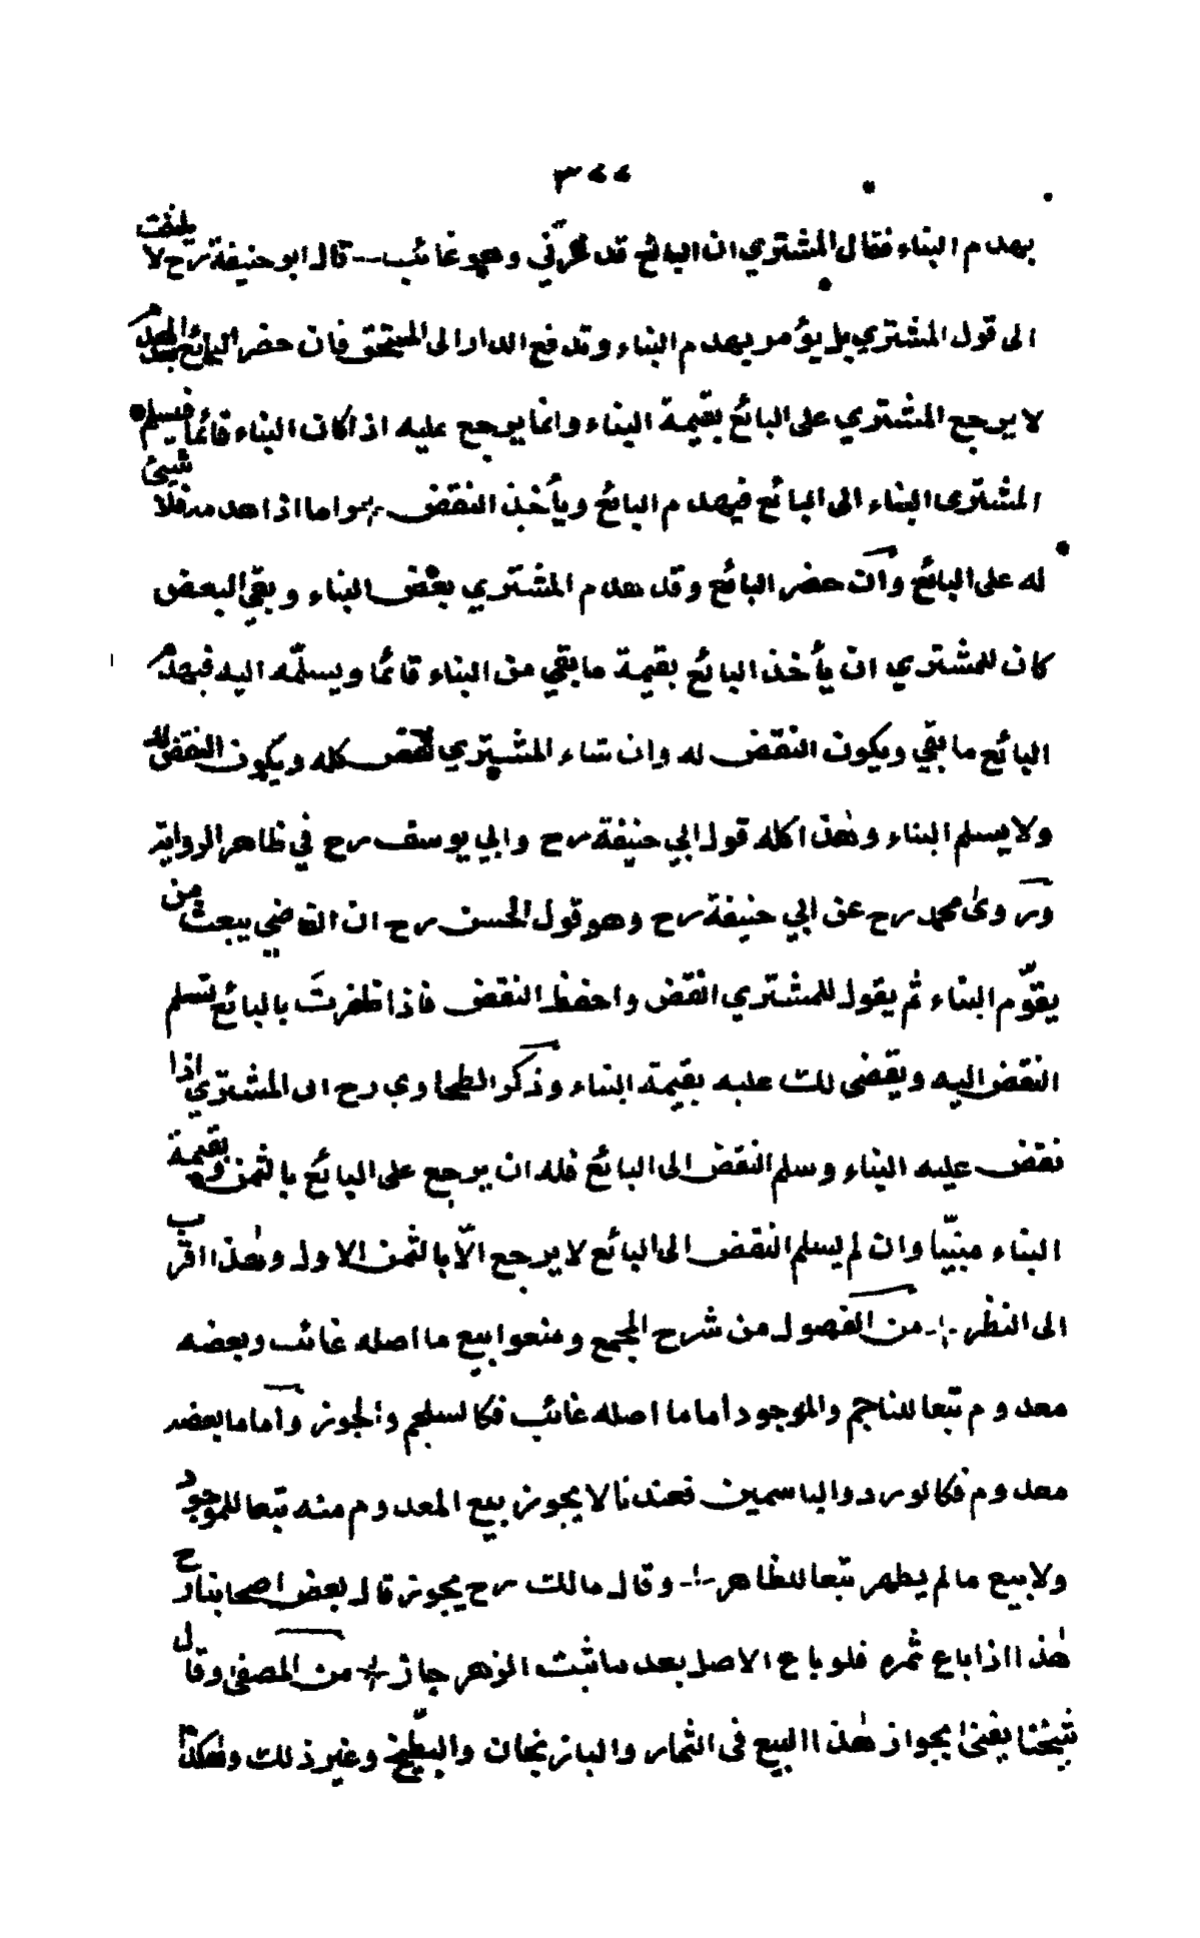 ٣٤٤
بهدم البناء فقال المشتري ان البائع قد غرّني وهو غائب -- قال ابو حنيفة رح لا يلتفت
الى قول المشتري بل يؤمر بهدم البناء وتدفع الدار الى المستحق فان حضر البائع بعد الهدم
لا يرجع المشتري على البائع بقيمة البناء وانما يرجع عليه اذا كان البناء قائما فيسلم
المشترى البناء الى البائع فيهدم البائع ويأخذ النقض واما اذا هدمه فلا شيئ
له على البائع وان حضر البائع وقد هدم المشتري بعض البناء وبقي البعض
كان للمشتري ان يأخذ البائع بقيمة ما بقي من البناء قائما ويسلّمه اليه فيهدم
البائع ما بقي ويكون النقض له وان شاء المشتري نقض كله ويكون النقض له
ولا يسلم البناء وهذا كله قول ابي حنيفة رح وابي يوسف رح في ظاهر الرواية
وروى محمد رح عن ابي حنيفة رح وهو قول الحسن رح ان القاضي يبعث من
يقوّم البناء ثم يقول للمشتري انقض واحفظ النقض فاذا ظفرتَ بالبائع تسلم
النقض اليه ويقضى لك عليه بقيمة البناء وذكر الطحاوي رح ان المشتري اذا
نقض عليه البناء وسلم النقض الى البائع فله ان يرجع على البائع بالثمن وبقيمة
البناء مبنيّا وان لم يسلم النقض الى البائع لا يرجع الّا بالثمن الاول وهذا اقرب
الى النظر -- من الفصول من شرح المجمع ومنعوا بيع ما اصله غائب وبعضه
معدوم تبعا للناجم والموجود أما ما اصله غائب فكالسلجم والجوز وأما ما بعضه
معدوم فكالورد والياسمين فعندنا لا يجوز بيع المعدوم منه تبعا للموجود
ولا بيع ما لم يظهر تبعا للظاهر -- وقال مالك رح يجوز قال بعض اصحابنا رح
هذا اذا باع ثمره فلو باع الاصل بعد ما ثبت الزهر جاز من المصفى وقال
شيخنا يفتى بجواز هذا البيع فى الثمار والباذنجان والبطّيخ وغير ذلك وهكذا